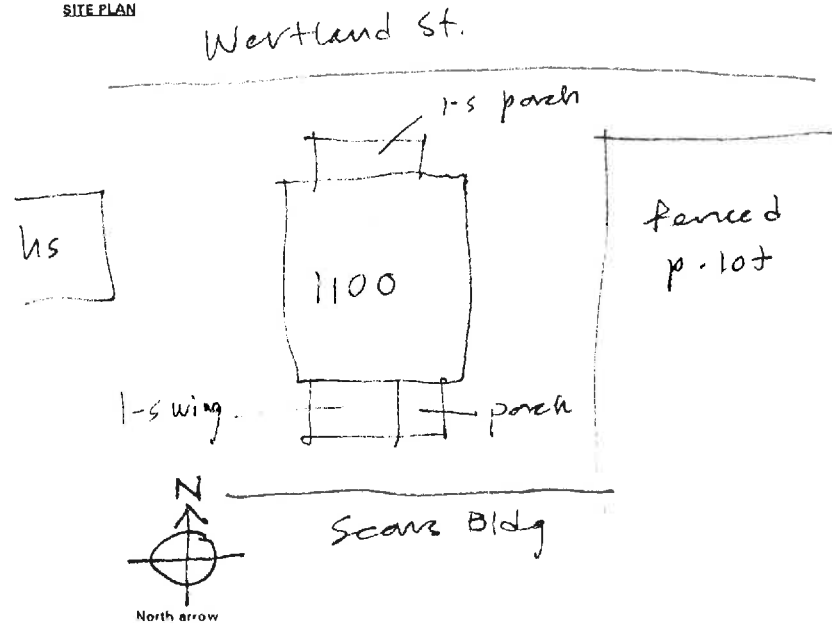 SITE PLAN
Wertland St.
1-s porch
hs
fenced
p. lot
1100
1-s wing
porch
N
Sears Bldg
North arrow